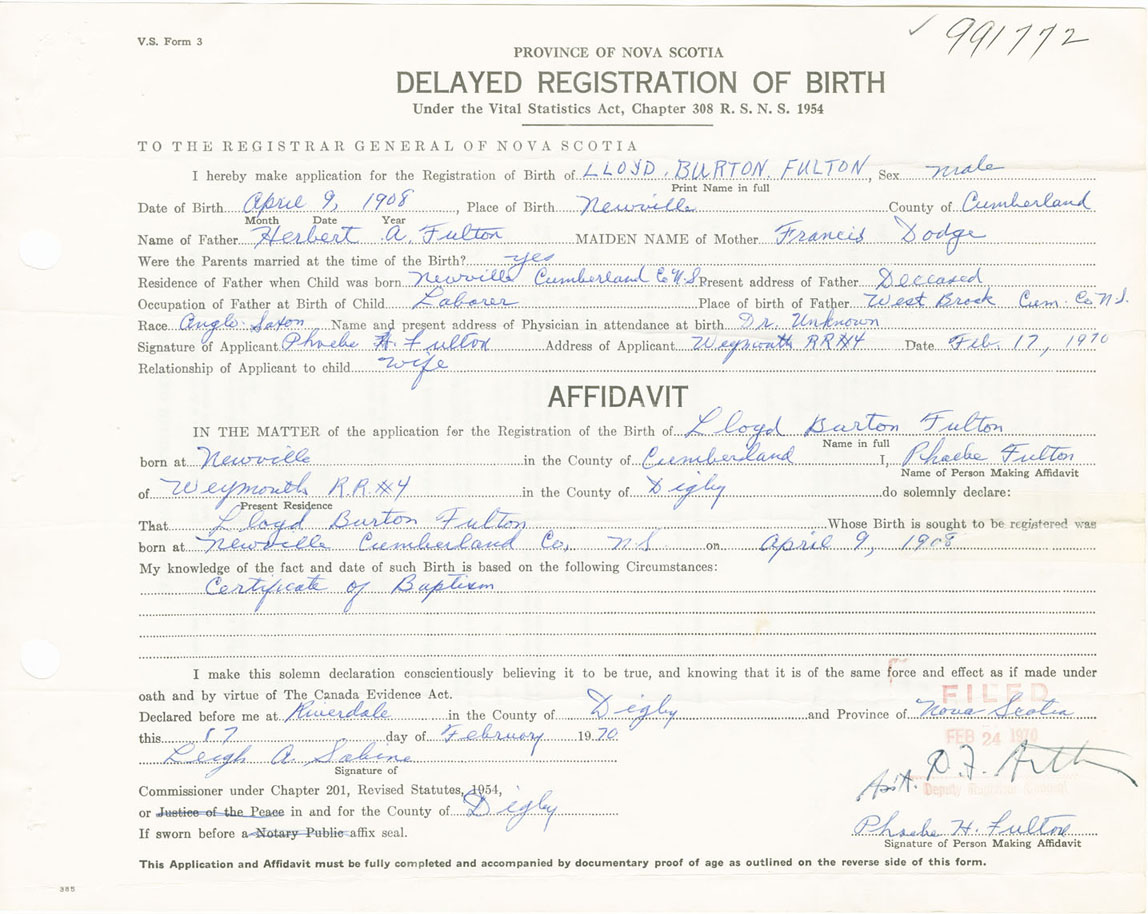 V.S. Form 3
✓ 991772
PROVINCE OF NOVA SCOTIA
DELAYED REGISTRATION OF BIRTH
Under the Vital Statistics Act, Chapter 308 R. S. N. S. 1954
TO THE REGISTRAR GENERAL OF NOVA SCOTIA
I hereby make application for the Registration of Birth of LLOYD BURTON FULTON, Sex male
Print Name in full
Date of Birth April 9, 1908, Place of Birth Newville County of Cumberland
Month Date Year
Name of Father Herbert A. Fulton MAIDEN NAME of Mother Francis Dodge
Were the Parents married at the time of the Birth? yes
Residence of Father when Child was born Newville Cumberland Co N.S Present address of Father Deceased
Occupation of Father at Birth of Child Laborer Place of birth of Father West Brook Cum. Co N.S.
Race Anglo Saxon Name and present address of Physician in attendance at birth Dr. Unknown
Signature of Applicant Phoebe H Fulton Address of Applicant Weymouth RR#4 Date Feb. 17, 1970
Relationship of Applicant to child wife
AFFIDAVIT
IN THE MATTER of the application for the Registration of the Birth of Lloyd Burton Fulton
Name in full
born at Newville in the County of Cumberland I, Phoebe Fulton
Name of Person Making Affidavit
of Weymouth R.R.#4 in the County of Digby do solemnly declare:
Present Residence
That Lloyd Burton Fulton Whose Birth is sought to be registered was
born at Newville Cumberland Co., N.S. on April 9, 1908
My knowledge of the fact and date of such Birth is based on the following Circumstances:
Certificate of Baptism
I make this solemn declaration conscientiously believing it to be true, and knowing that it is of the same force and effect as if made under
oath and by virtue of The Canada Evidence Act.
FILED
Declared before me at Riverdale in the County of Digby and Province of Nova Scotia
this 17 day of February 1970
FEB 24 1970
Leigh A. Sabine
Signature of
Asst. D. F.
Deputy Registrar General
Commissioner under Chapter 201, Revised Statutes, 1954,
or Justice of the Peace in and for the County of Digby
If sworn before a Notary Public affix seal.
Phoebe H. Fulton
Signature of Person Making Affidavit
This Application and Affidavit must be fully completed and accompanied by documentary proof of age as outlined on the reverse side of this form.
385